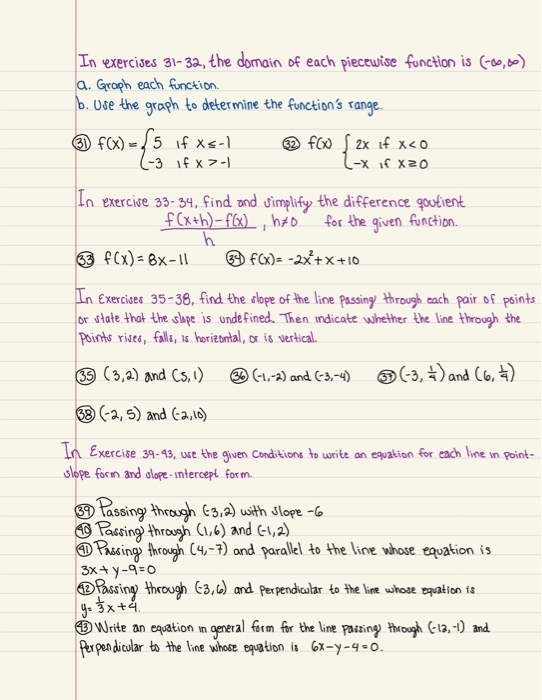 In exercises 31-32, the domain of each piecewise function is (-∞,∞)
a. Graph each function.
b. Use the graph to determine the function's range.
(31) f(x) = { 5 if x ≤ -1 (32) f(x) { 2x if x < 0
-3 if x > -1 -x if x ≥ 0
In exercise 33-34, find and simplify the difference qoutient
f(x+h)-f(x) , h≠0 for the given function.
h
(33) f(x) = 8x-11 (34) f(x) = -2x²+x+10
In Exercises 35-38, find the slope of the line passing through each pair of points
or state that the slope is undefined. Then indicate whether the line through the
points rises, falls, is horizontal, or is vertical.
(35) (3,2) and (5,1) (36) (-1,-2) and (-3,-4) (37) (-3, 1/4) and (6, 1/4)
(38) (-2,5) and (-2,10)
In Exercise 39-43, use the given conditions to write an equation for each line in point-
slope form and slope-intercept form.
(39) Passing through (-3,2) with slope -6
(40) Passing through (1,6) and (-1,2)
(41) Passing through (4,-7) and parallel to the line whose equation is
3x+y-9=0
(42) Passing through (-3,6) and perpendicular to the line whose equation is
y= 1/3 x+4.
(43) Write an equation in general form for the line passing through (-12,-1) and
Perpendicular to the line whose equation is 6x-y-4=0.